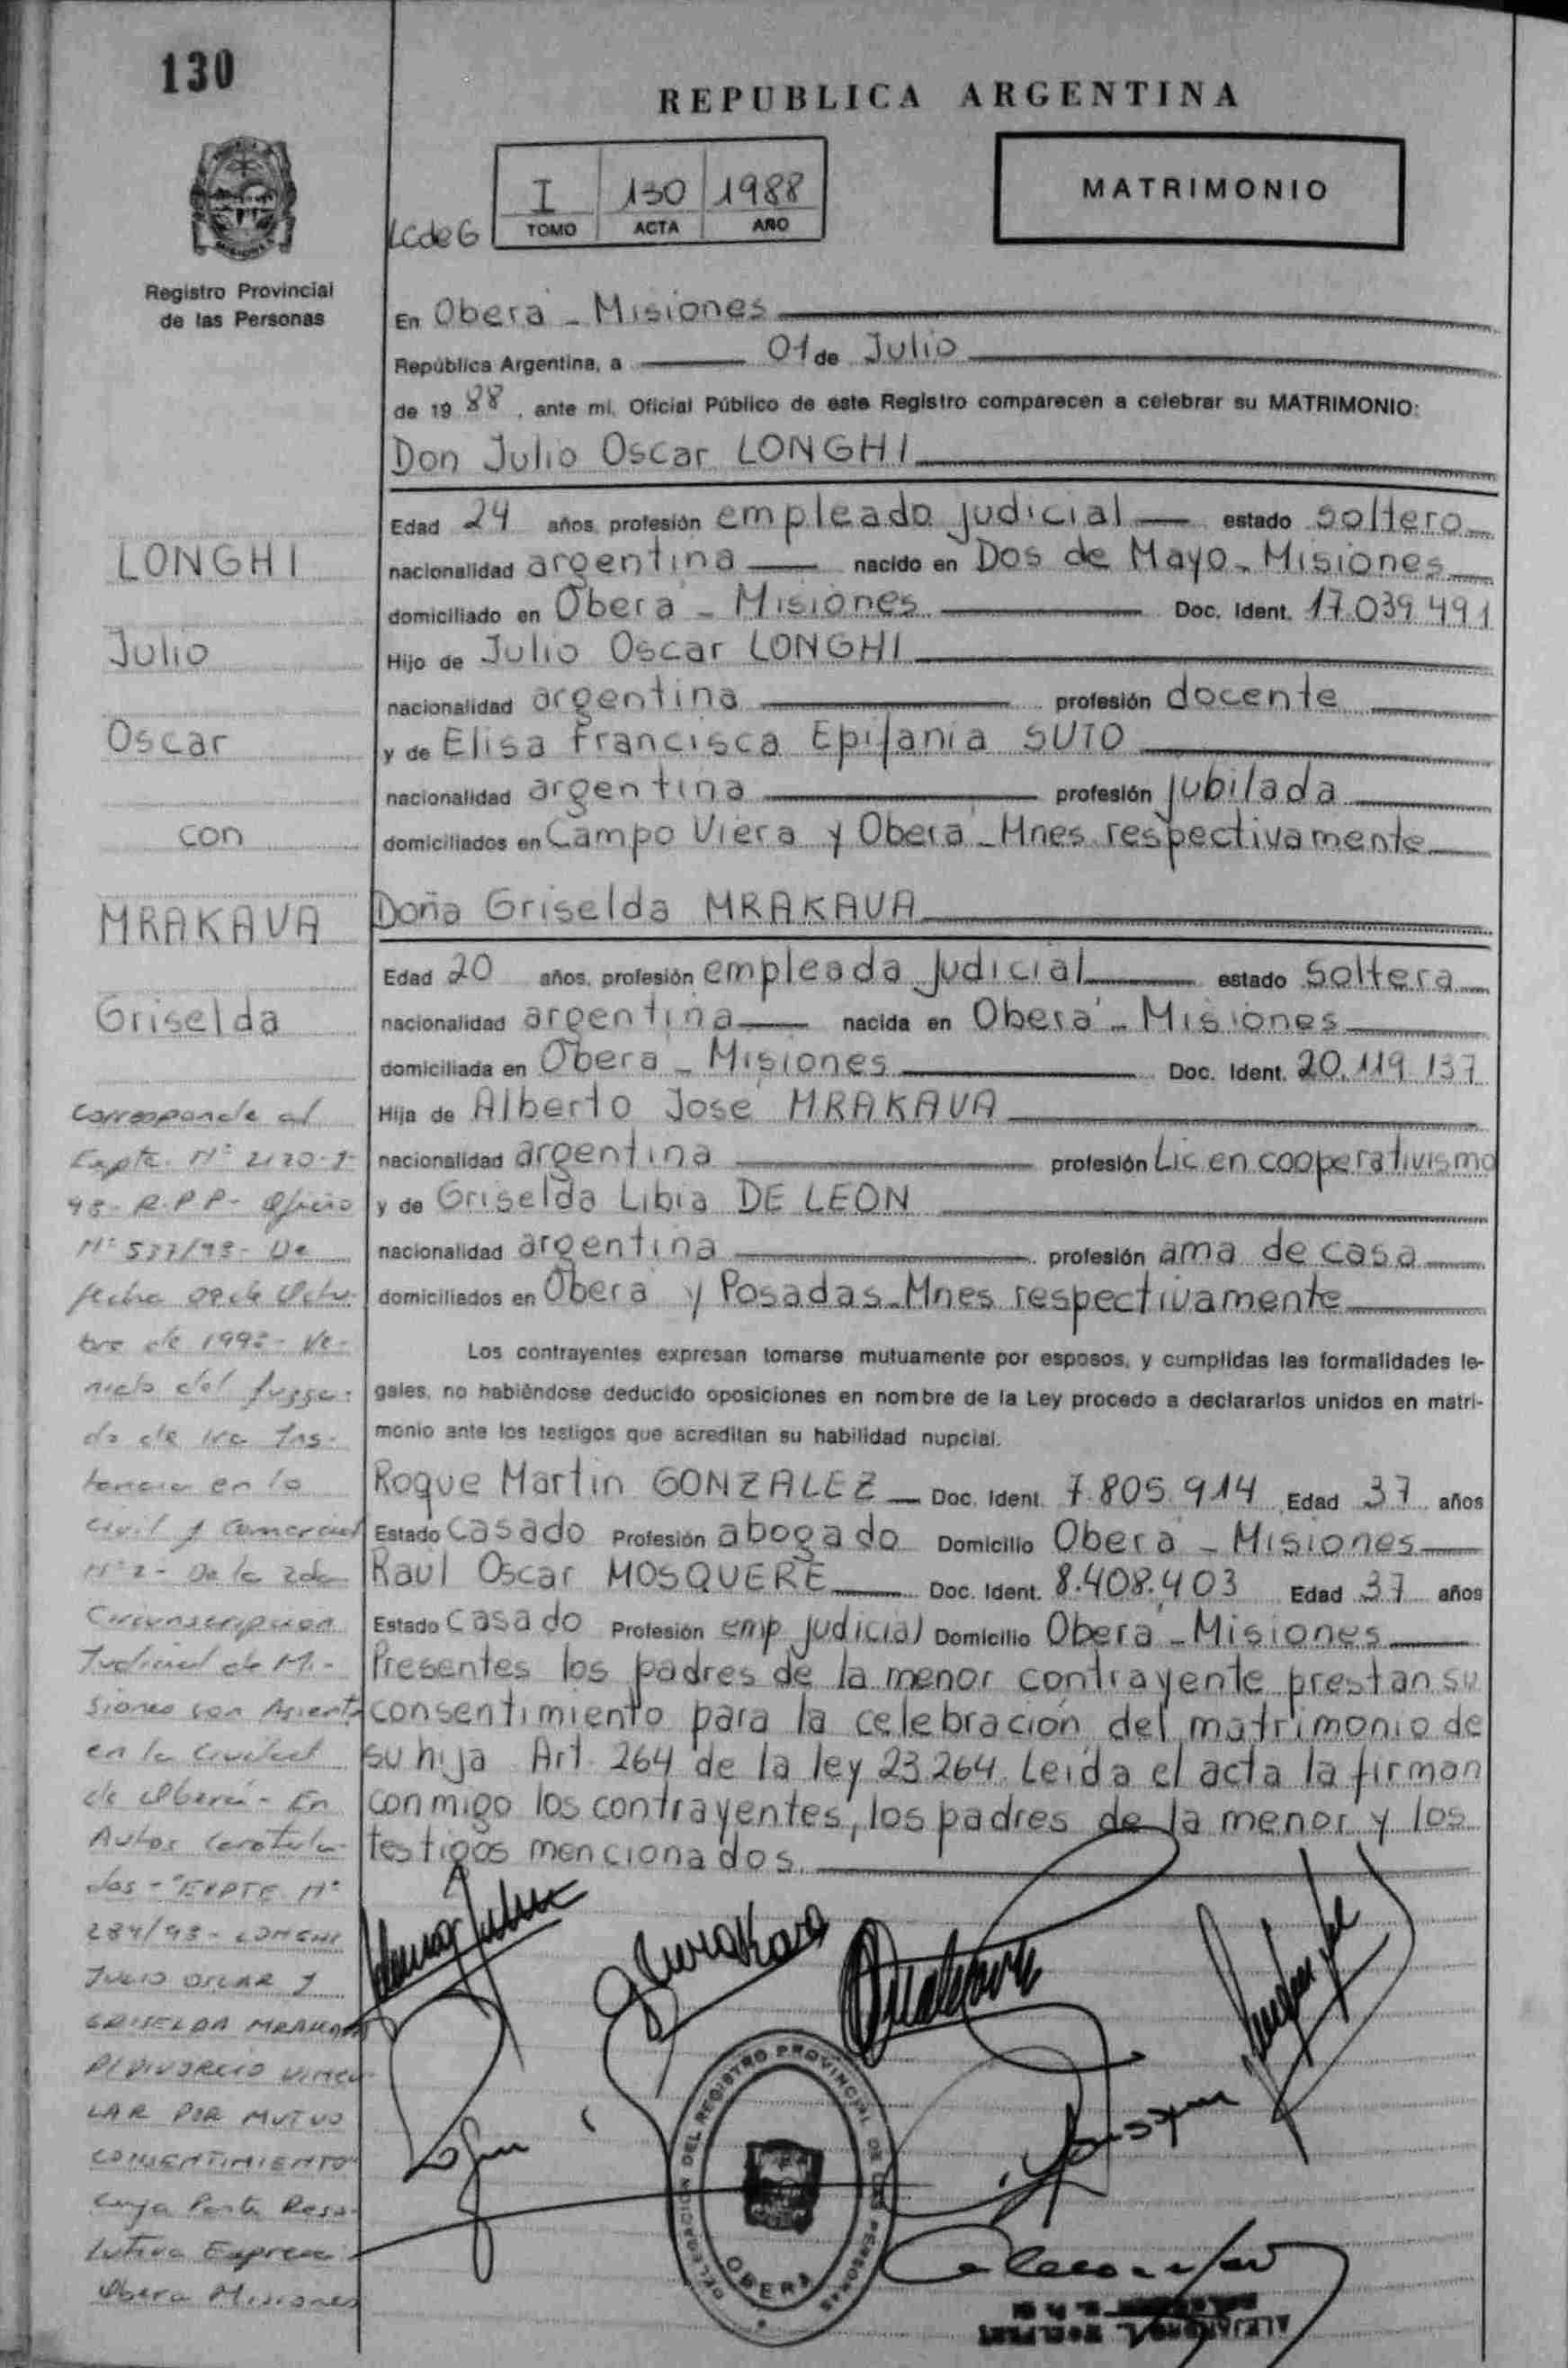 130
REPUBLICA ARGENTINA
I 130 1988
TOMO ACTA AÑO
LCdeG
MATRIMONIO
Registro Provincial
de las Personas
En Oberá - Misiones
República Argentina, a 01 de Julio
de 19 88, ante mí, Oficial Público de este Registro comparecen a celebrar su MATRIMONIO:
Don Julio Oscar LONGHI
Edad 24 años, profesión empleado judicial estado soltero
nacionalidad argentina nacido en Dos de Mayo - Misiones
domiciliado en Oberá - Misiones Doc. Ident. 17.039.491
Hijo de Julio Oscar LONGHI
nacionalidad argentina profesión docente
y de Elisa Francisca Epifania SUTO
nacionalidad argentina profesión jubilada
domiciliados en Campo Viera y Oberá - Mnes respectivamente
Doña Griselda MRAKAVA
Edad 20 años, profesión empleada judicial estado soltera
nacionalidad argentina nacida en Oberá - Misiones
domiciliada en Oberá - Misiones Doc. Ident. 20.119.137
Hija de Alberto José MRAKAVA
nacionalidad argentina profesión Lic en cooperativismo
y de Griselda Libia DE LEON
nacionalidad argentina profesión ama de casa
domiciliados en Oberá y Posadas - Mnes respectivamente
Los contrayentes expresan tomarse mutuamente por esposos, y cumplidas las formalidades le-
gales, no habiéndose deducido oposiciones en nombre de la Ley procedo a declararlos unidos en matri-
monio ante los testigos que acreditan su habilidad nupcial.
Roque Martin GONZALEZ Doc. Ident. 7.805.914 Edad 37 años
Estado casado Profesión abogado Domicilio Oberá - Misiones
Raul Oscar MOSQUERE Doc. Ident. 8.408.403 Edad 37 años
Estado casado Profesión emp judicial Domicilio Oberá - Misiones
Presentes los padres de la menor contrayente prestan su
consentimiento para la celebración del matrimonio de
su hija Art. 264 de la ley 23.264. Leída el acta la firman
conmigo los contrayentes, los padres de la menor y los
testigos mencionados.
LONGHI
Julio
Oscar
con
MRAKAVA
Griselda
Corresponde al
Expte. Nº
R.P.P- Oficio
Nº 577/93- De
fecha de Octu-
bre de 199 - Ve-
nido del Juzga-
do de 1ra Ins-
tancia en lo
Civil y Comercial
Nº 2 - De la 2da
Circunscripcion
Judicial de Mi-
siones con Asiento
en la Ciudad
de Oberá - En
Autos Caratula-
dos - "EXPTE Nº
284/93 - LONGHI
JULIO OSCAR Y
GRISELDA MRAKAVA
P/DIVORCIO VINCU-
LAR POR MUTUO
CONSENTIMIENTO"
cuya Parte Reso-
lutiva Expresa
Oberá Misiones
DELEGACION DEL REGISTRO PROVINCIAL DE LAS PERSONAS
OBERA